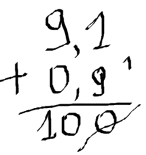 9,1
+ 0,9
100